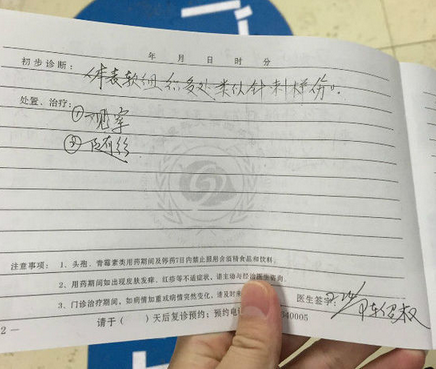 年 月 日 时 分
初步诊断： 体表软组织多处类似针刺样伤。
处置、治疗：
①观察
②随诊
注意事项： 1、头孢、青霉素类用药期间及停药7日内禁止服用含酒精食品和饮料。
2、用药期间如出现皮肤发痒、红疹等不适症状，请主动与经治医生咨询。
3、门诊治疗期间，如病情加重或病情突然变化，请及时来
医生签字：
2 —
请于（ ）天后复诊预约；预约电 540005